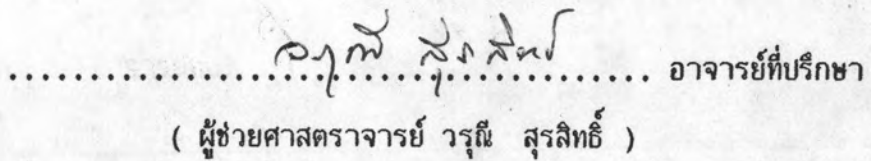 วรุณี สุรสิทธิ์
........................................ อาจารย์ที่ปรึกษา
( ผู้ช่วยศาสตราจารย์ วรุณี สุรสิทธิ์ )